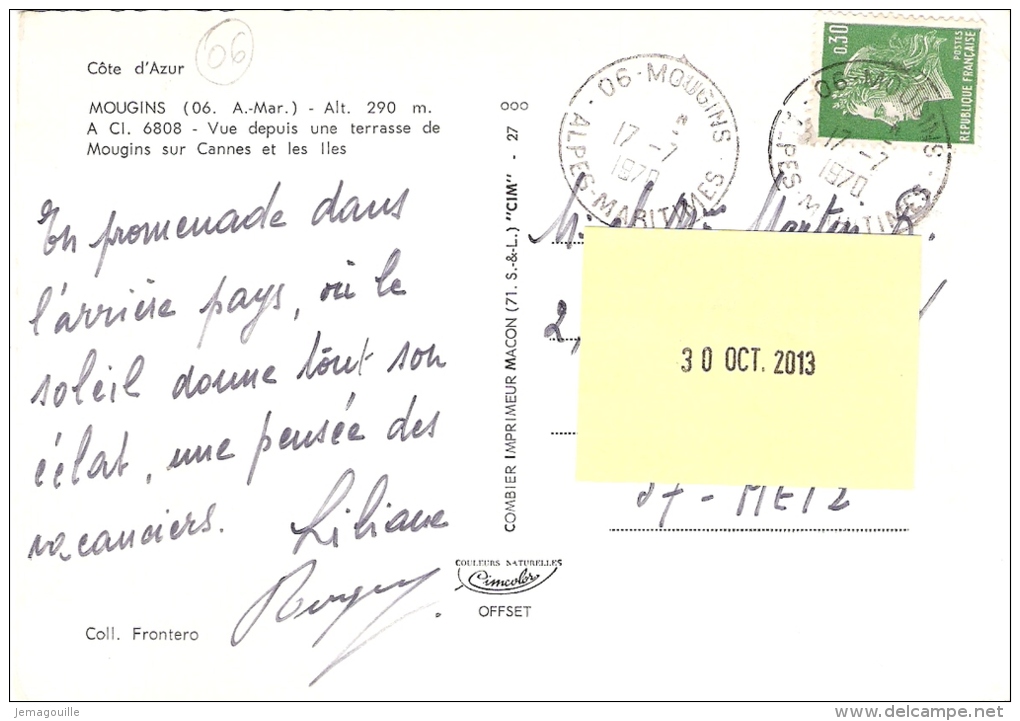 06
Côte d'Azur
MOUGINS (06. A.-Mar.) - Alt. 290 m.
A CI. 6808 - Vue depuis une terrasse de
Mougins sur Cannes et les Iles
En promenade dans
l'arrière pays, où le
soleil donne tout son
éclat, une pensée des
vacanciers. Liliane
Coll. Frontero
ooo
COMBIER IMPRIMEUR MACON (71. S.-&-L.) "CIM" - 27
COULEURS NATURELLES
Cimcolor
OFFSET
06 - MOUGINS
17 - 7
1970
ALPES-MARITIMES
0,30
POSTES
REPUBLIQUE FRANÇAISE
06 - MOUGINS
17 - 7
1970
ALPES-MARITIMES
M. Martin
2,
30 OCT. 2013
57 - METZ
Jemagouille
delcampe.net